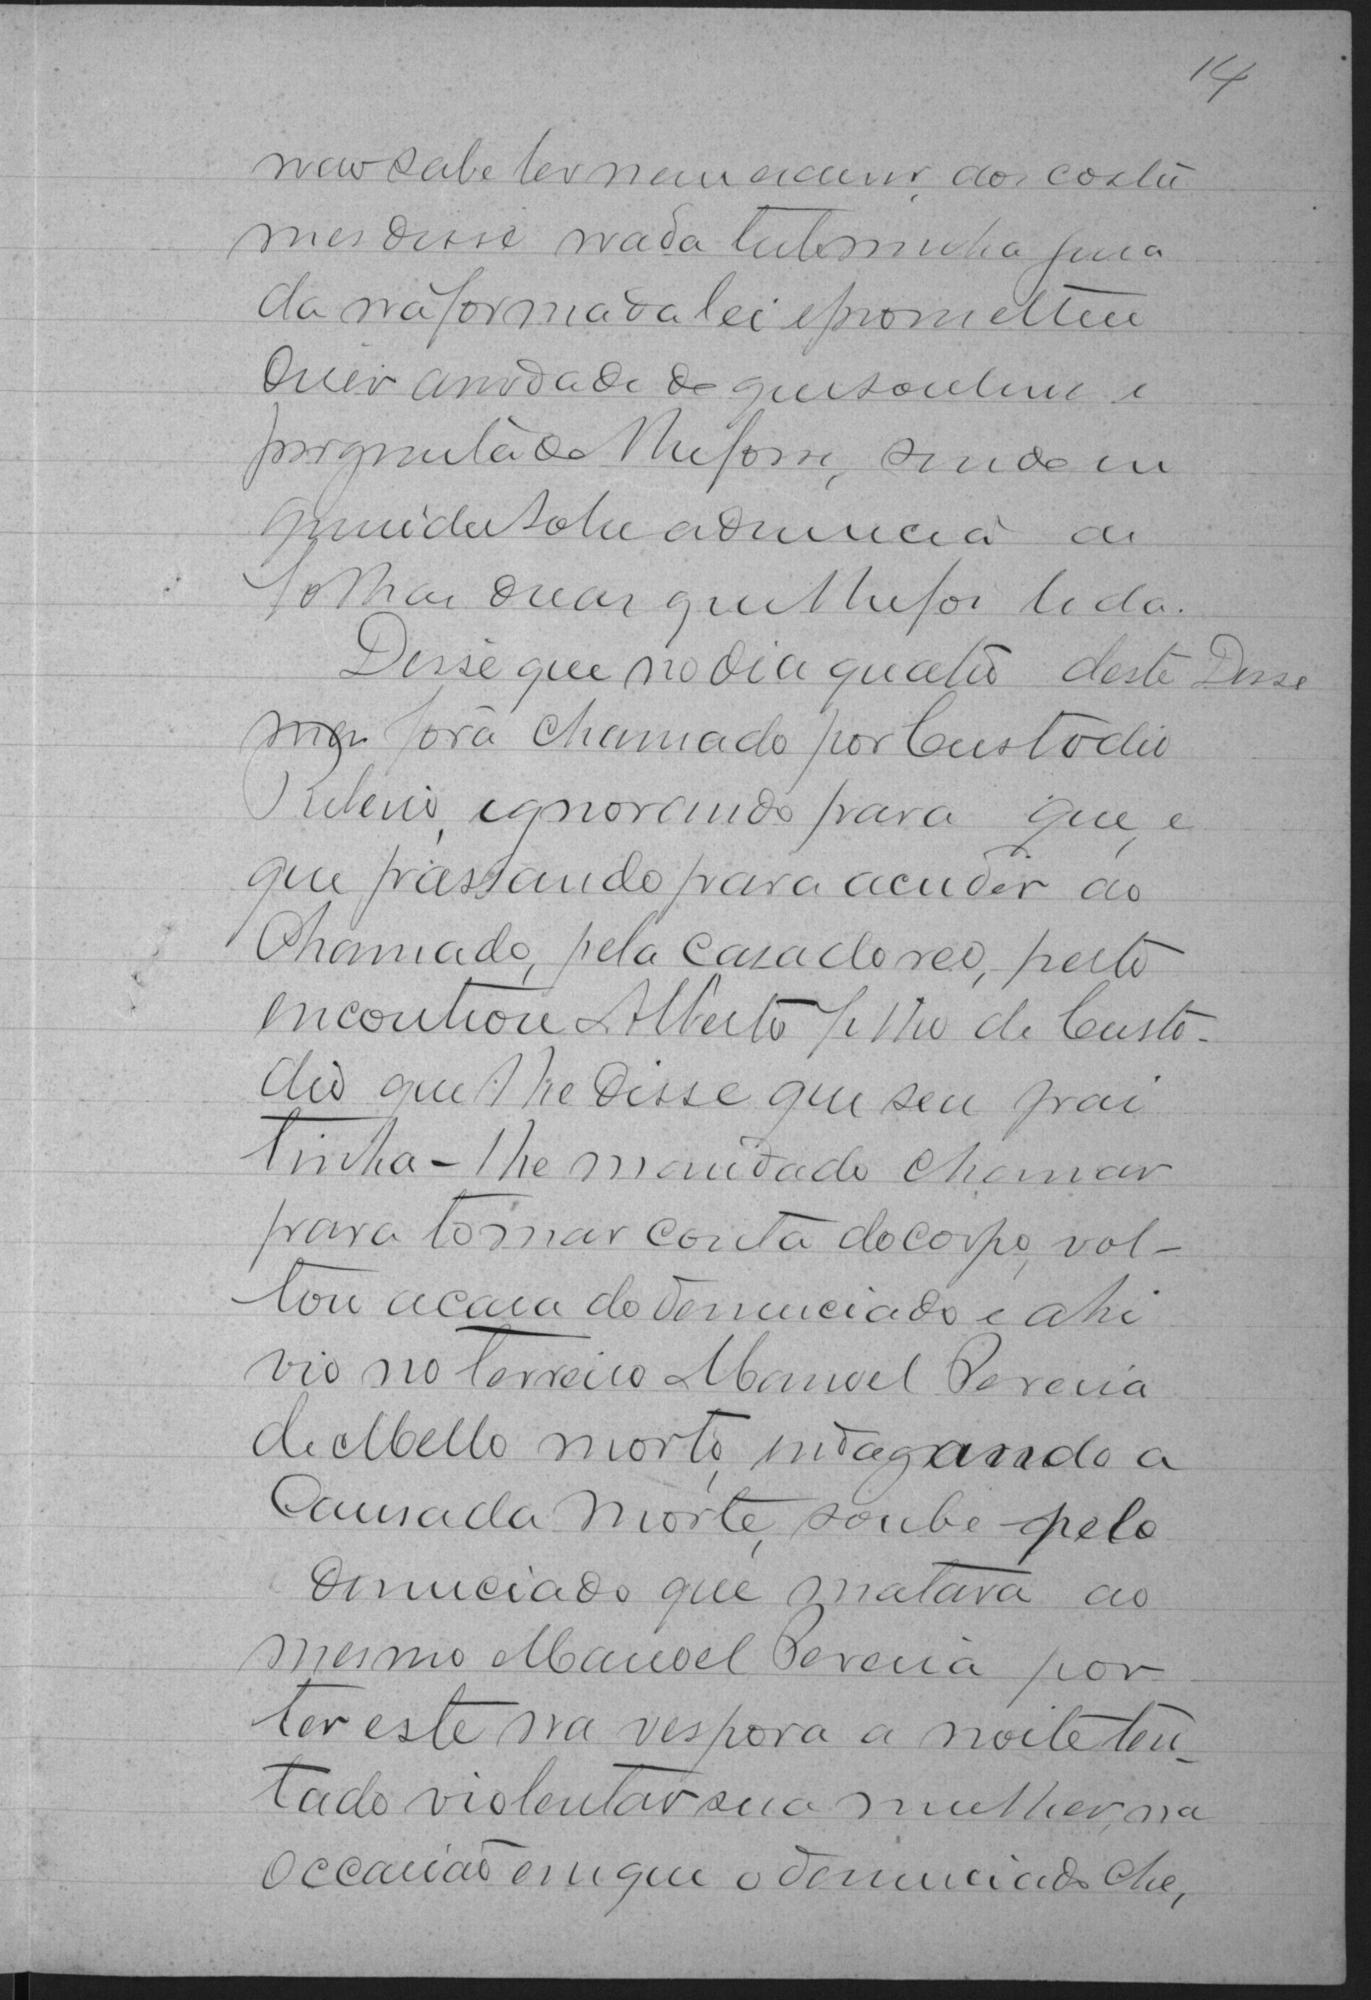 14
nao sabe ler nem escrever, aos costu
mes disse nada testeminha jura
da na forma da lei e prometteu
dizer a verdade do que soubesse e
perguntado lhe fosse, sendo in
quirida sobre a denuncia de
folhas duas que lhe foi lida.
Disse que no dia quatro deste Disse
mez fora chamado por Custodio
Ribeiro, ignorando para que, e
que passando para acudir ao
chamado, pela casa do reo, perto
encontrou Alberto filho de Custo-
dio que lhe disse que seu pai
tinha-lhe mandado chamar
para tomar conta do corpo, vol-
tou a casa do denunciado e ahi
vio no terreiro Manoel Pereira
de Mello morto, indagando a
causa da morte, soube pelo
denunciado que matara ao
mesmo Manoel Pereira por
ter este na vespora a noite ten-
tado violentar sua mulher, na
occasião em que o denunciado che,